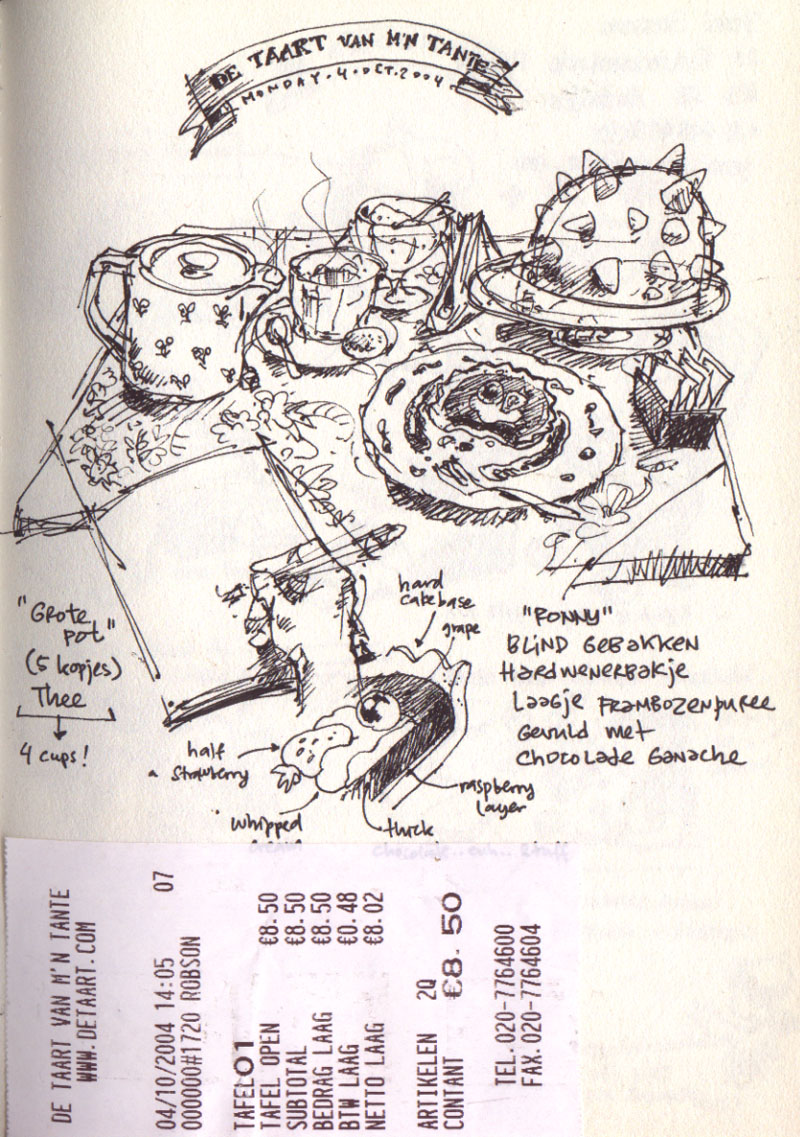 DE TAART VAN M'N TANTE
MONDAY. 4. OCT. 2004
"GROTE
POT"
(5 kopjes)
Thee
4 cups!
hard
cakebase
grape
half
a strawberry
whipped
cream
thick
chocolate
stuff
raspberry
layer
"PONNY"
BLIND GEBAKKEN
HARDWENERBAKJE
LAAGJE FRAMBOZENPUREE
GEVULD MET
CHOCOLADE GANACHE
DE TAART VAN M'N TANTE
WWW.DETAART.COM
04/10/2004 14:05 07
000000#1720 ROBSON
TAFEL 01
TAFEL OPEN €8.50
SUBTOTAL €8.50
BEDRAG LAAG €8.50
BTW LAAG €0.48
NETTO LAAG €8.02
ARTIKELEN 2Q
CONTANT €8.50
TEL.020-7764600
FAX.020-7764604